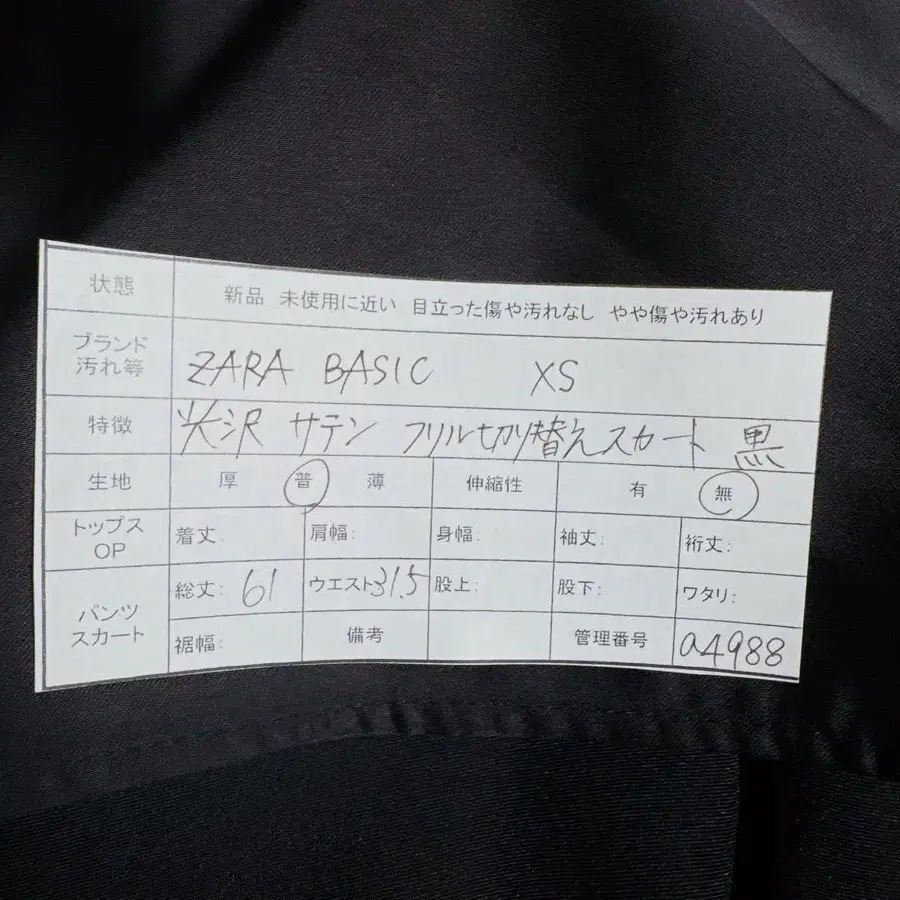 状態 新品 未使用に近い 目立った傷や汚れなし やや傷や汚れあり
ブランド
汚れ等 ZARA BASIC XS
特徴 光沢 サテン フリル切り替えスカート 黒
生地 厚 普 薄 伸縮性 有 無
トップス
OP 着丈: 肩幅: 身幅: 袖丈: 裄丈:
パンツ
スカート 総丈: 61 ウエスト31.5 股上: 股下: ワタリ:
裾幅: 備考 管理番号 a4988